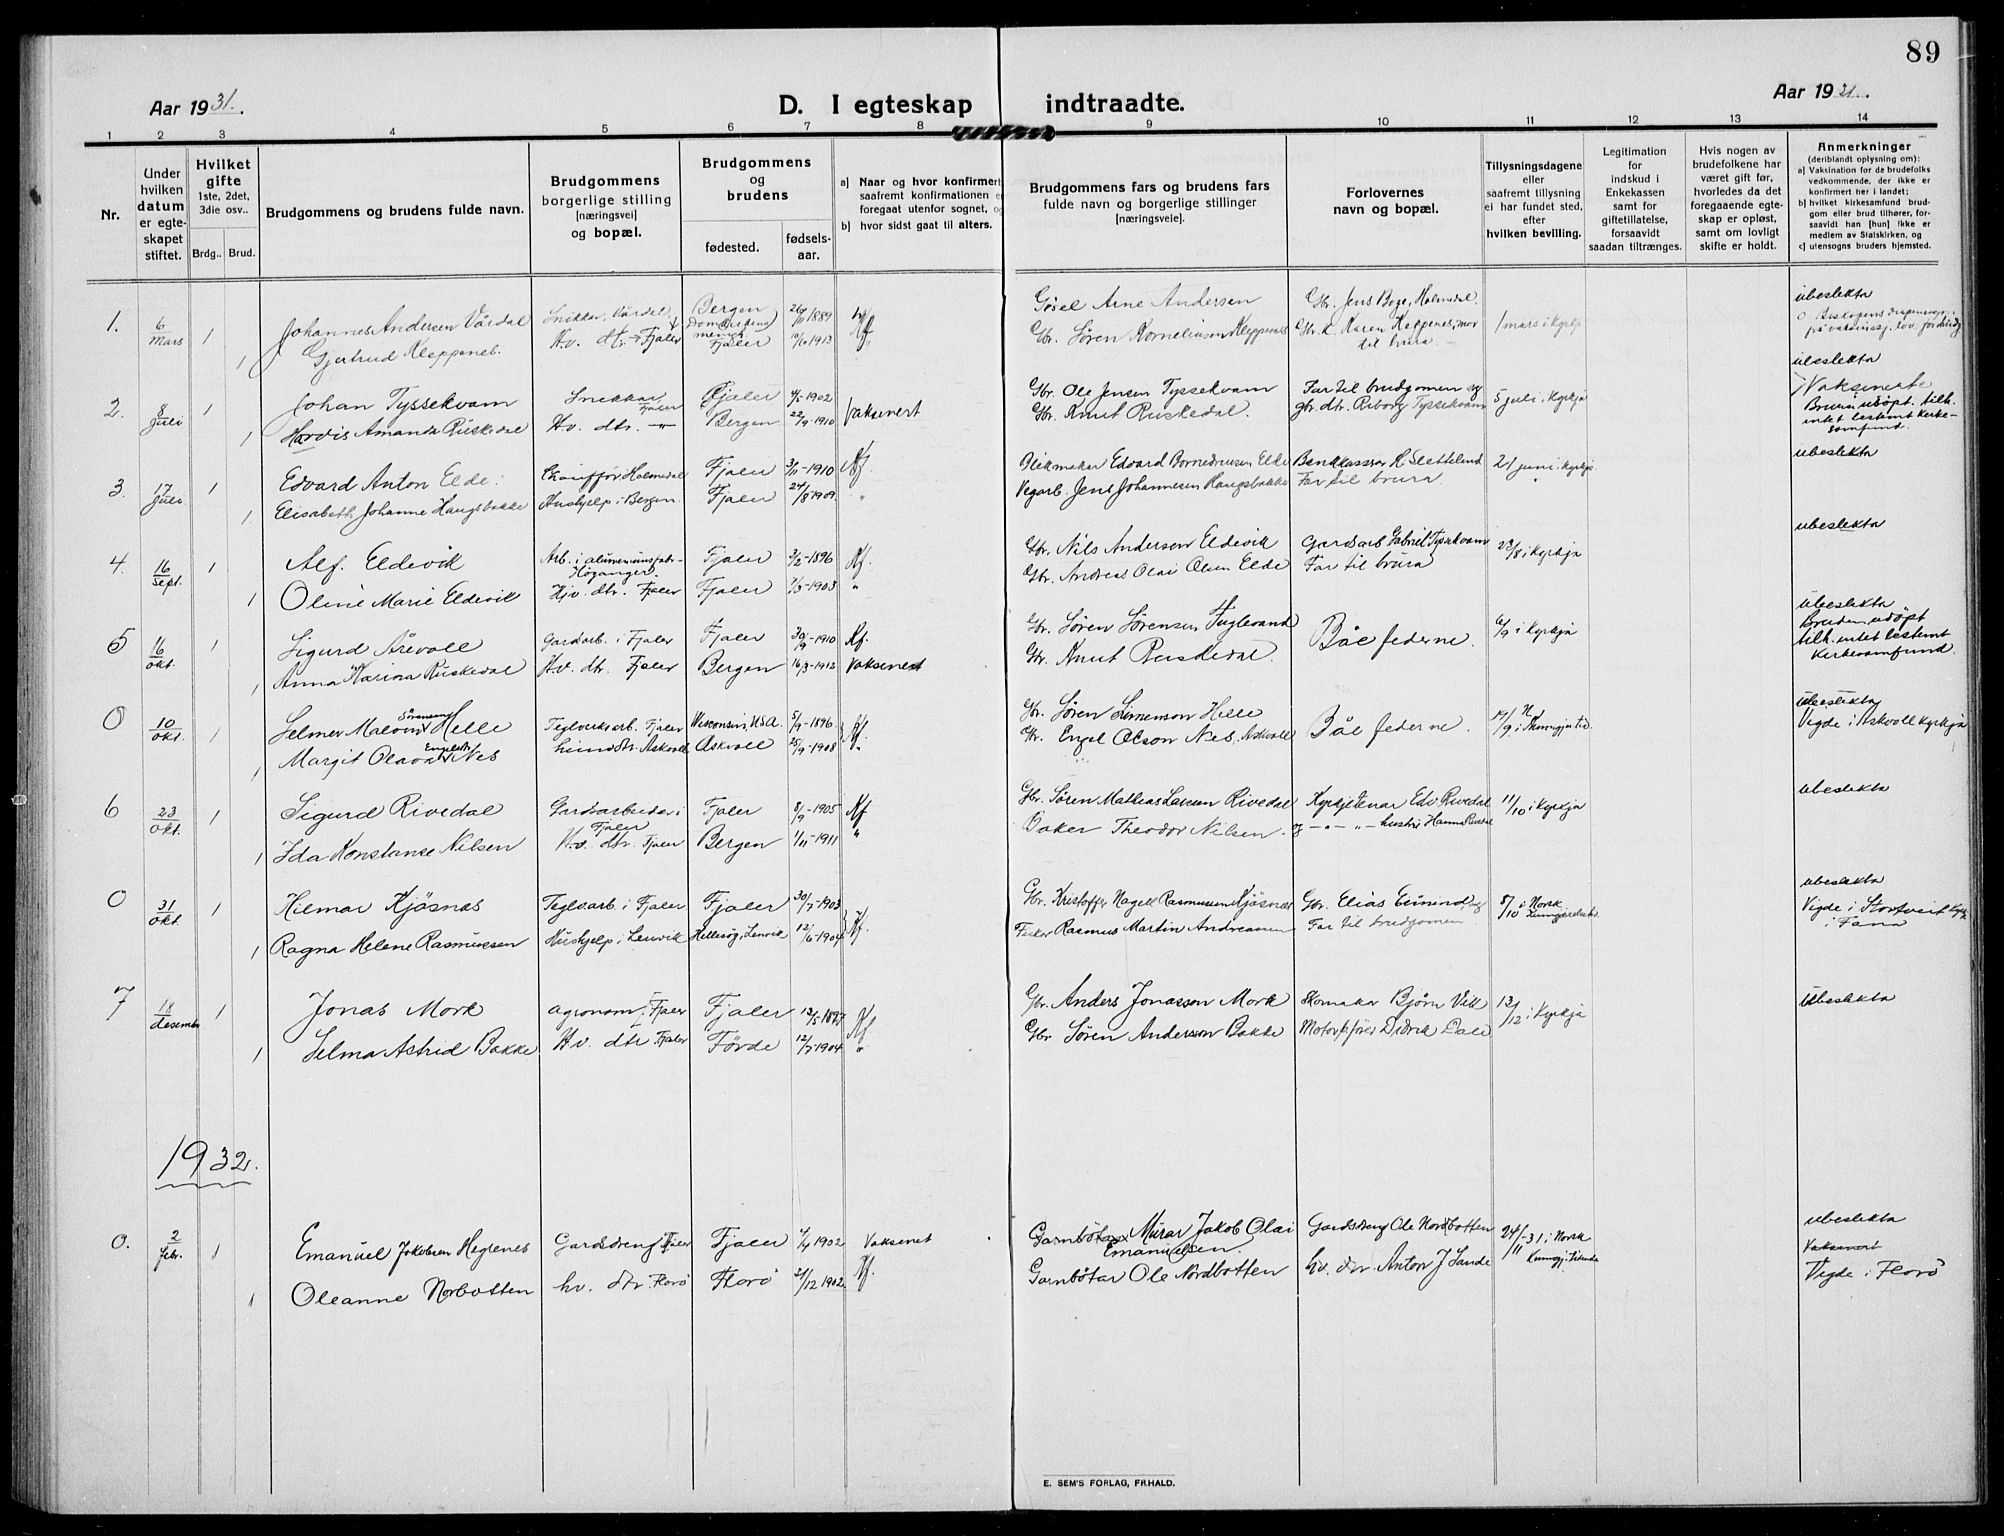 89
Aar 1931.
D. I egteskap indtraadte.
Aar 1931.
1 2 3 4 5 6 7 8 9 10 11 12 13 14
Nr.
Under hvilken datum er egteskapet stiftet.
Hvilket gifte 1ste, 2det, 3die osv..
Brdg.. Brud.
Brudgommens og brudens fulde navn.
Brudgommens borgerlige stilling [næringsvei] og bopæl.
Brudgommens og brudens
fødested. fødsels-aar.
a) Naar og hvor konfirmert
saafremt konfirmationen e
foregaat utenfor sognet, o
b) hvor sidst gaat til alters.
Brudgommens fars og brudens fars
fulde navn og borgerlige stillinger
[næringsveie].
Forlovernes
navn og bopæl.
Tillysningsdagene
eller
saafremt tillysning
ei har fundet sted,
efter
hvilken bevilling.
Legitimation
for
indskud i
Enkekassen
samt for
giftetillatelse,
forsaavidt
saadan tiltrænges.
Hvis nogen av
brudefolkene har
været gift før,
hvorledes da det
foregaaende egte-
skap er opløst,
samt om lovligt
skifte er holdt.
Anmerkninger
(deriblandt oplysning om):
a) Vaksination for de brudefolks
vedkommende, der ikke er
konfirmert her i landet;
b) hvilket kirkesamfund brud-
gom eller brud tilhører, for-
saavidt han [hun] ikke er
medlem av Statskirken, og
c) utensogns bruders hjemsted.
1. 6 Mars 1 Johannes Andersen Vårdal Snikkar, Vårdal Bergen 1889 Arne Andersen Gbr. Jens Boge, Holmedal 1 mars i kyrkja ubeslekta
1 Gjertrud Kleppenes. Hv. dtr. Fjaler Fjaler 1913 Gbr. Søren Korneliussen Kleppenes Karen Kleppenes, mor til brura
2. 8 Juli 1 Johan Tyssekvam Snikkar Fjaler Fjaler 4/5-1902 Vaksinert Gbr. Ole Jensen Tyssekvam Far til brudgomen og 5 juli i kyrkja ubeslekta
1 Hordis Amanda Ruskedal Hv. dtr. -"- Bergen 22/9-1910 Gbr. Knut Ruskedal. gbr. dtr. Tyssekvam Vaksinerte Bruri udöpt. tilh. intet bestemt kirkesamfund.
3. 17 Juli 1 Edvard Anton Elde. Chauffør i Holmedal Fjaler 3/11-1910 Kf. Blikmakar Edvard Elde Bankkasserar H. Sletteland 21 juni i kyrkja ubeslekta
1 Elisabeth Johanne Haugsbakke Hushjelp i Bergen Fjaler 24/8 1909 " Vegarb. Jens Johannesen Haugsbakke Far til brura "
4. 16 Sept. 1 Alf. Eldevik Arb. i aluminiumsfabr. Høyanger. Fjaler 3/2-1896 Kf. Gbr. Nils Andersen Eldevik Gardsarb Gabriel Tyssekvam 23/8 i kyrkja ubeslekta
1 Oline Marie Eldevik Hjv. dtr. Fjaler Fjaler 7/3-1903 " Gbr. Andreas Olai Olsen Elde Far til brura
5 16 Okt. 1 Sigurd Årevoll Gardarb. i Fjaler Fjaler 30/9-1910 Kf. Gbr. Søren Sørensen Fuglevand Båe federne. 6/9 i kyrkja ubeslekta
1 Anna Karina Ruskedal Hv. dtr. Fjaler Bergen 16/3-1912 Vaksinert Gbr. Knut Ruskedal. Bruden udöpt tilh. intet bestemt kirkesamfund.
0 10 okt. 1 Selmer Malvin Sørensen Helle Teglverksarb. Fjaler Wisconsin, USA. 5/9-1896 Kf. Gbr. Søren Simenson Helle Båe federne. 19/9 i N. Kunngjtid. ubeslekta
1 Margit Olava Engelsdtr Nes heimedtr. Askvoll Askvoll 25/9-1908 " Gbr. Engel Olson Nes, Askvoll Vigde i Askvoll kyrkja
6 23 Okt. 1 Sigurd Rivedal Gardsarbeidar i Fjaler Fjaler 8/9-1905 Kf. Gbr. Søren Mathias Larsen Rivedal Kyrkjetenar Edv Rivedal 11/10 i kyrkja ubeslekta
1 Ida Konstanse Nilsen Hv. dtr. Fjaler Bergen 1/11-1911 " Baker Theodor Nilsen. og -"-"- hustru Hanna Rivedal
0 31 Okt. 1 Hilmar Kjøsnes Teglv.arb. i Fjaler Fjaler 30/7-1903 Kf. Gbr. Kristoffer Nagell Rasmussen Kjøsnes Gbr. Elias 8/10 i Norsk ubeslekta
1 Ragna Helene Rasmussen Hushjelp i Lenvik Hellesøy, Lenvik 12/6-1904 Fisker Rasmus Martin Andreassen Far til brudgomen Vigde i Storetveit i Fana
7 18 desember 1 Jonas Mork agronom, i Fjaler Fjaler 13/5 1897 Kf. Gbr. Anders Jonasson Mork Skomakar Bjørn Vik 13/12 i kyrkja Ubeslekta
1 Selma Astrid Bakke Hv. dtr i Fjaler Förde 12/7-1904 " Gbr Søren Andersson Bakke Didrik Dale
1932.
0. 2 febr. 1 Emanuel Jakobsen Hegrenes Gardsdreng Fjaler Fjaler 7/4 1902 Vaksinert Murar Jakob Olai Emanuelsen. Gardsdreng Ole Nordbotten 24/11-31 i Norsk Kunngj. Tidende ubeslekta
1 Oleanne Norbotten hv. dtr Florö Florö 31/12 1902 Kf. Garnbötar Ole Nordbotten hv. dtr. Anton J Sande Vaksinert Vigde i Florö
E. SEM'S FORLAG, FR.HALD.